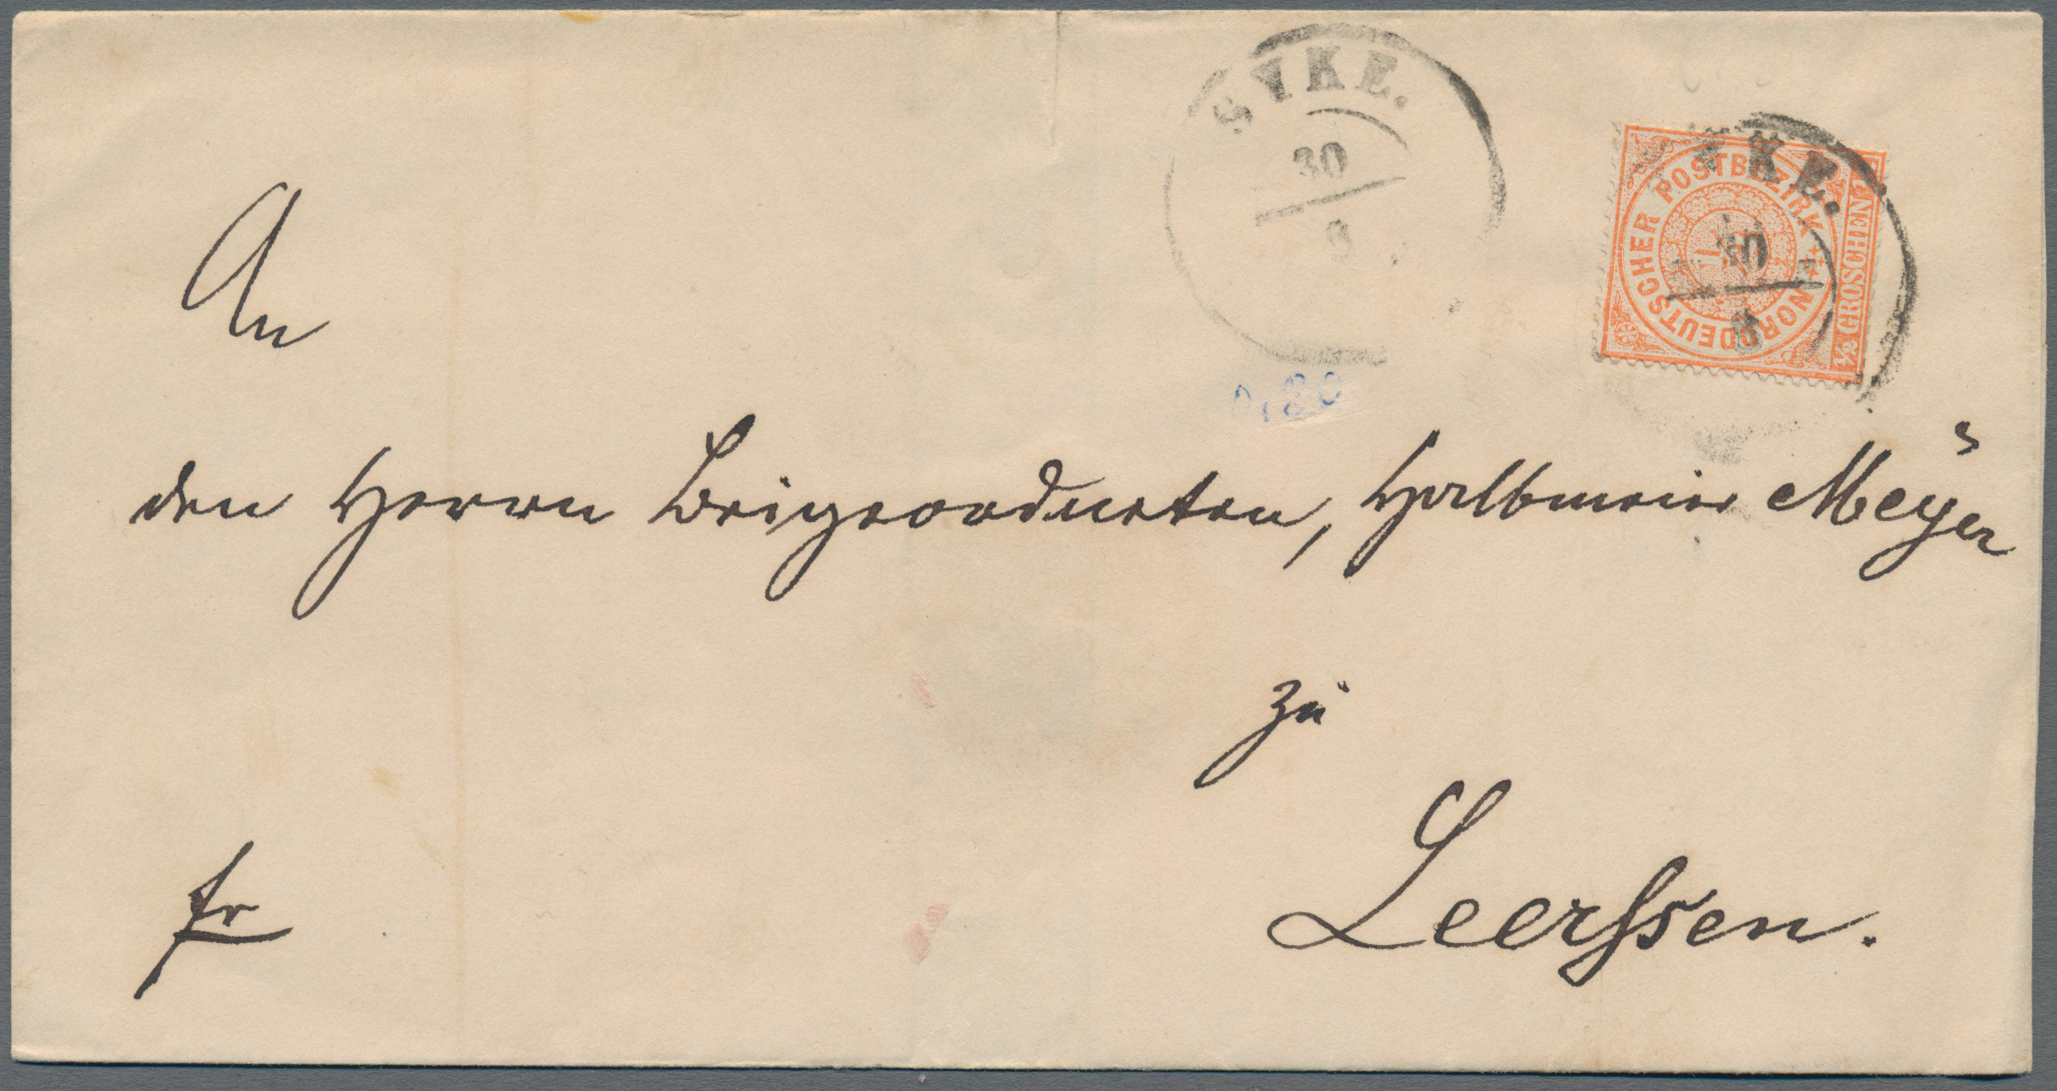 SYKE.
30
8
NORDDEUTSCHER POSTBEZIRK
1/2 GROSCHEN
YKE.
30
8
An
den Herrn Beigeordneten, Halbmeier Meÿer
zu
Leerssen.
fr